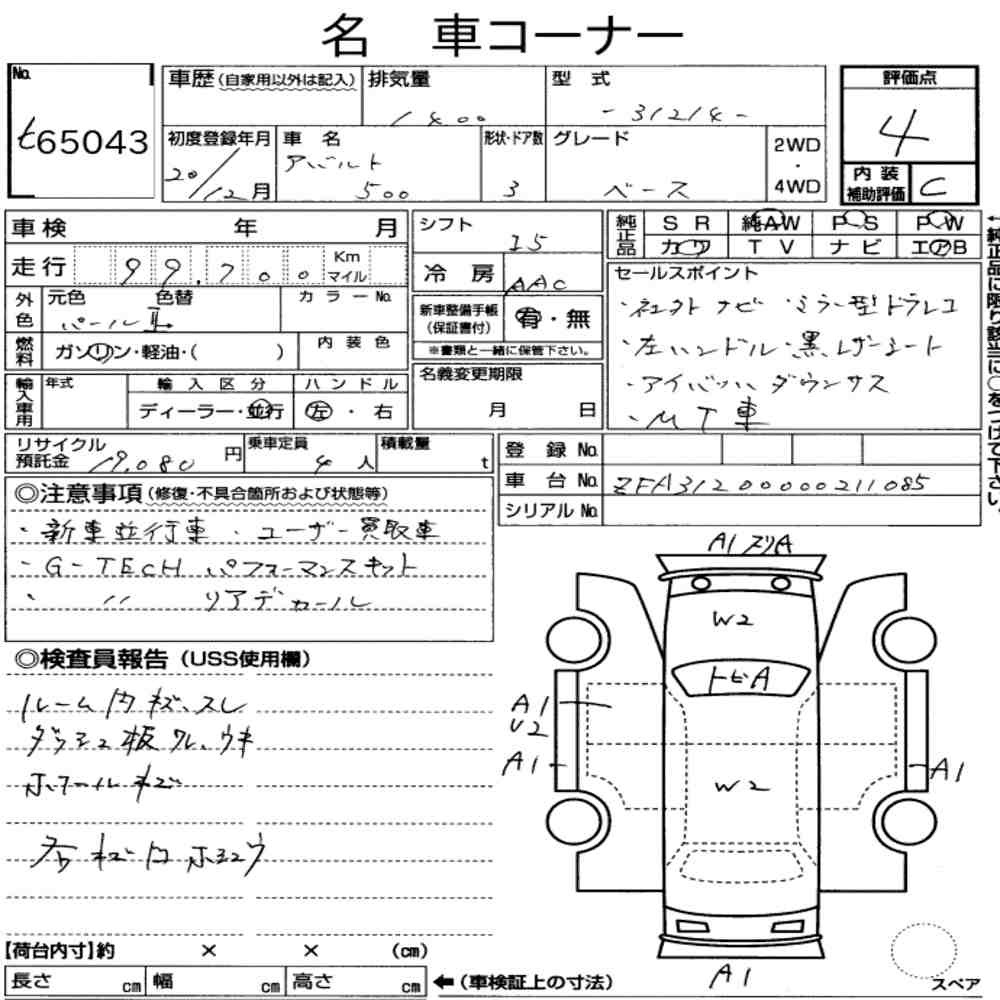 名 車コーナー
No.
t65043
車歴(自家用以外は記入)
排気量
1400
型 式
-31214-
評価点
4
初度登録年月
20/12月
車 名
アバルト
500
形状・ドア数
3
グレード
ベース
2WD
・
4WD
内 装
補助評価
C
車検 年 月
シフト
I5
純正品
S R 純AW P S P W
カワ T V ナビ エアB
走行 99,700
Km
マイル
冷 房
AAC
外色
元色 色替
パールII
カラーNo.
新車整備手帳
(保証書付)
有・無
※書類と一緒に保管下さい。
燃料
ガソリン・軽油・( )
内 装 色
輸入車用
年式
輸 入 区 分
ディーラー・並行
ハ ン ド ル
左 ・ 右
名義変更期限
月 日
セールスポイント
・ネクストナビ ・ミラー型ドラレコ
・左ハンドル・黒レザーシート
・アイバッハ ダウンサス
・MT車
←純正品に限り該当に○をつけて下さい。
リサイクル
預託金
19,080 円
乗車定員
4 人
積載量
t
登 録 No.
車 台 No.
ZFA31200000211085
シリアル No.
◎注意事項(修復・不具合箇所および状態等)
・新車並行車 ・ユーザー買取車
・G-TECH パフォーマンスキット
・ 〃 リアデカール
◎検査員報告(USS使用欄)
ルーム内キズ、スレ
ダッシュ板クレ、ウキ
ホイールキズ
キズ ホシュウ
A1 ヌリA
W2
トビA
A1
U2
A1
W2
A1
A1
スペア
【荷台内寸】約 × × (cm)
長さ cm 幅 cm 高さ cm
←(車検証上の寸法)